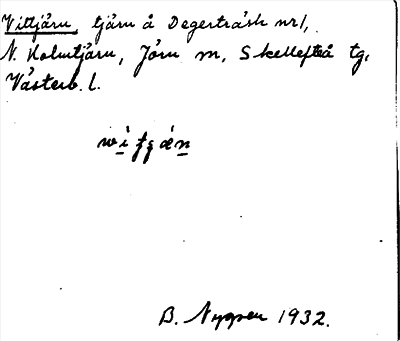 Vittjärn, tjärn å Degerträsk nr 1,
N. Holmtjärn, Jörn sn, Skellefteå tg,
Västerb. l.
B. Nygren 1932.